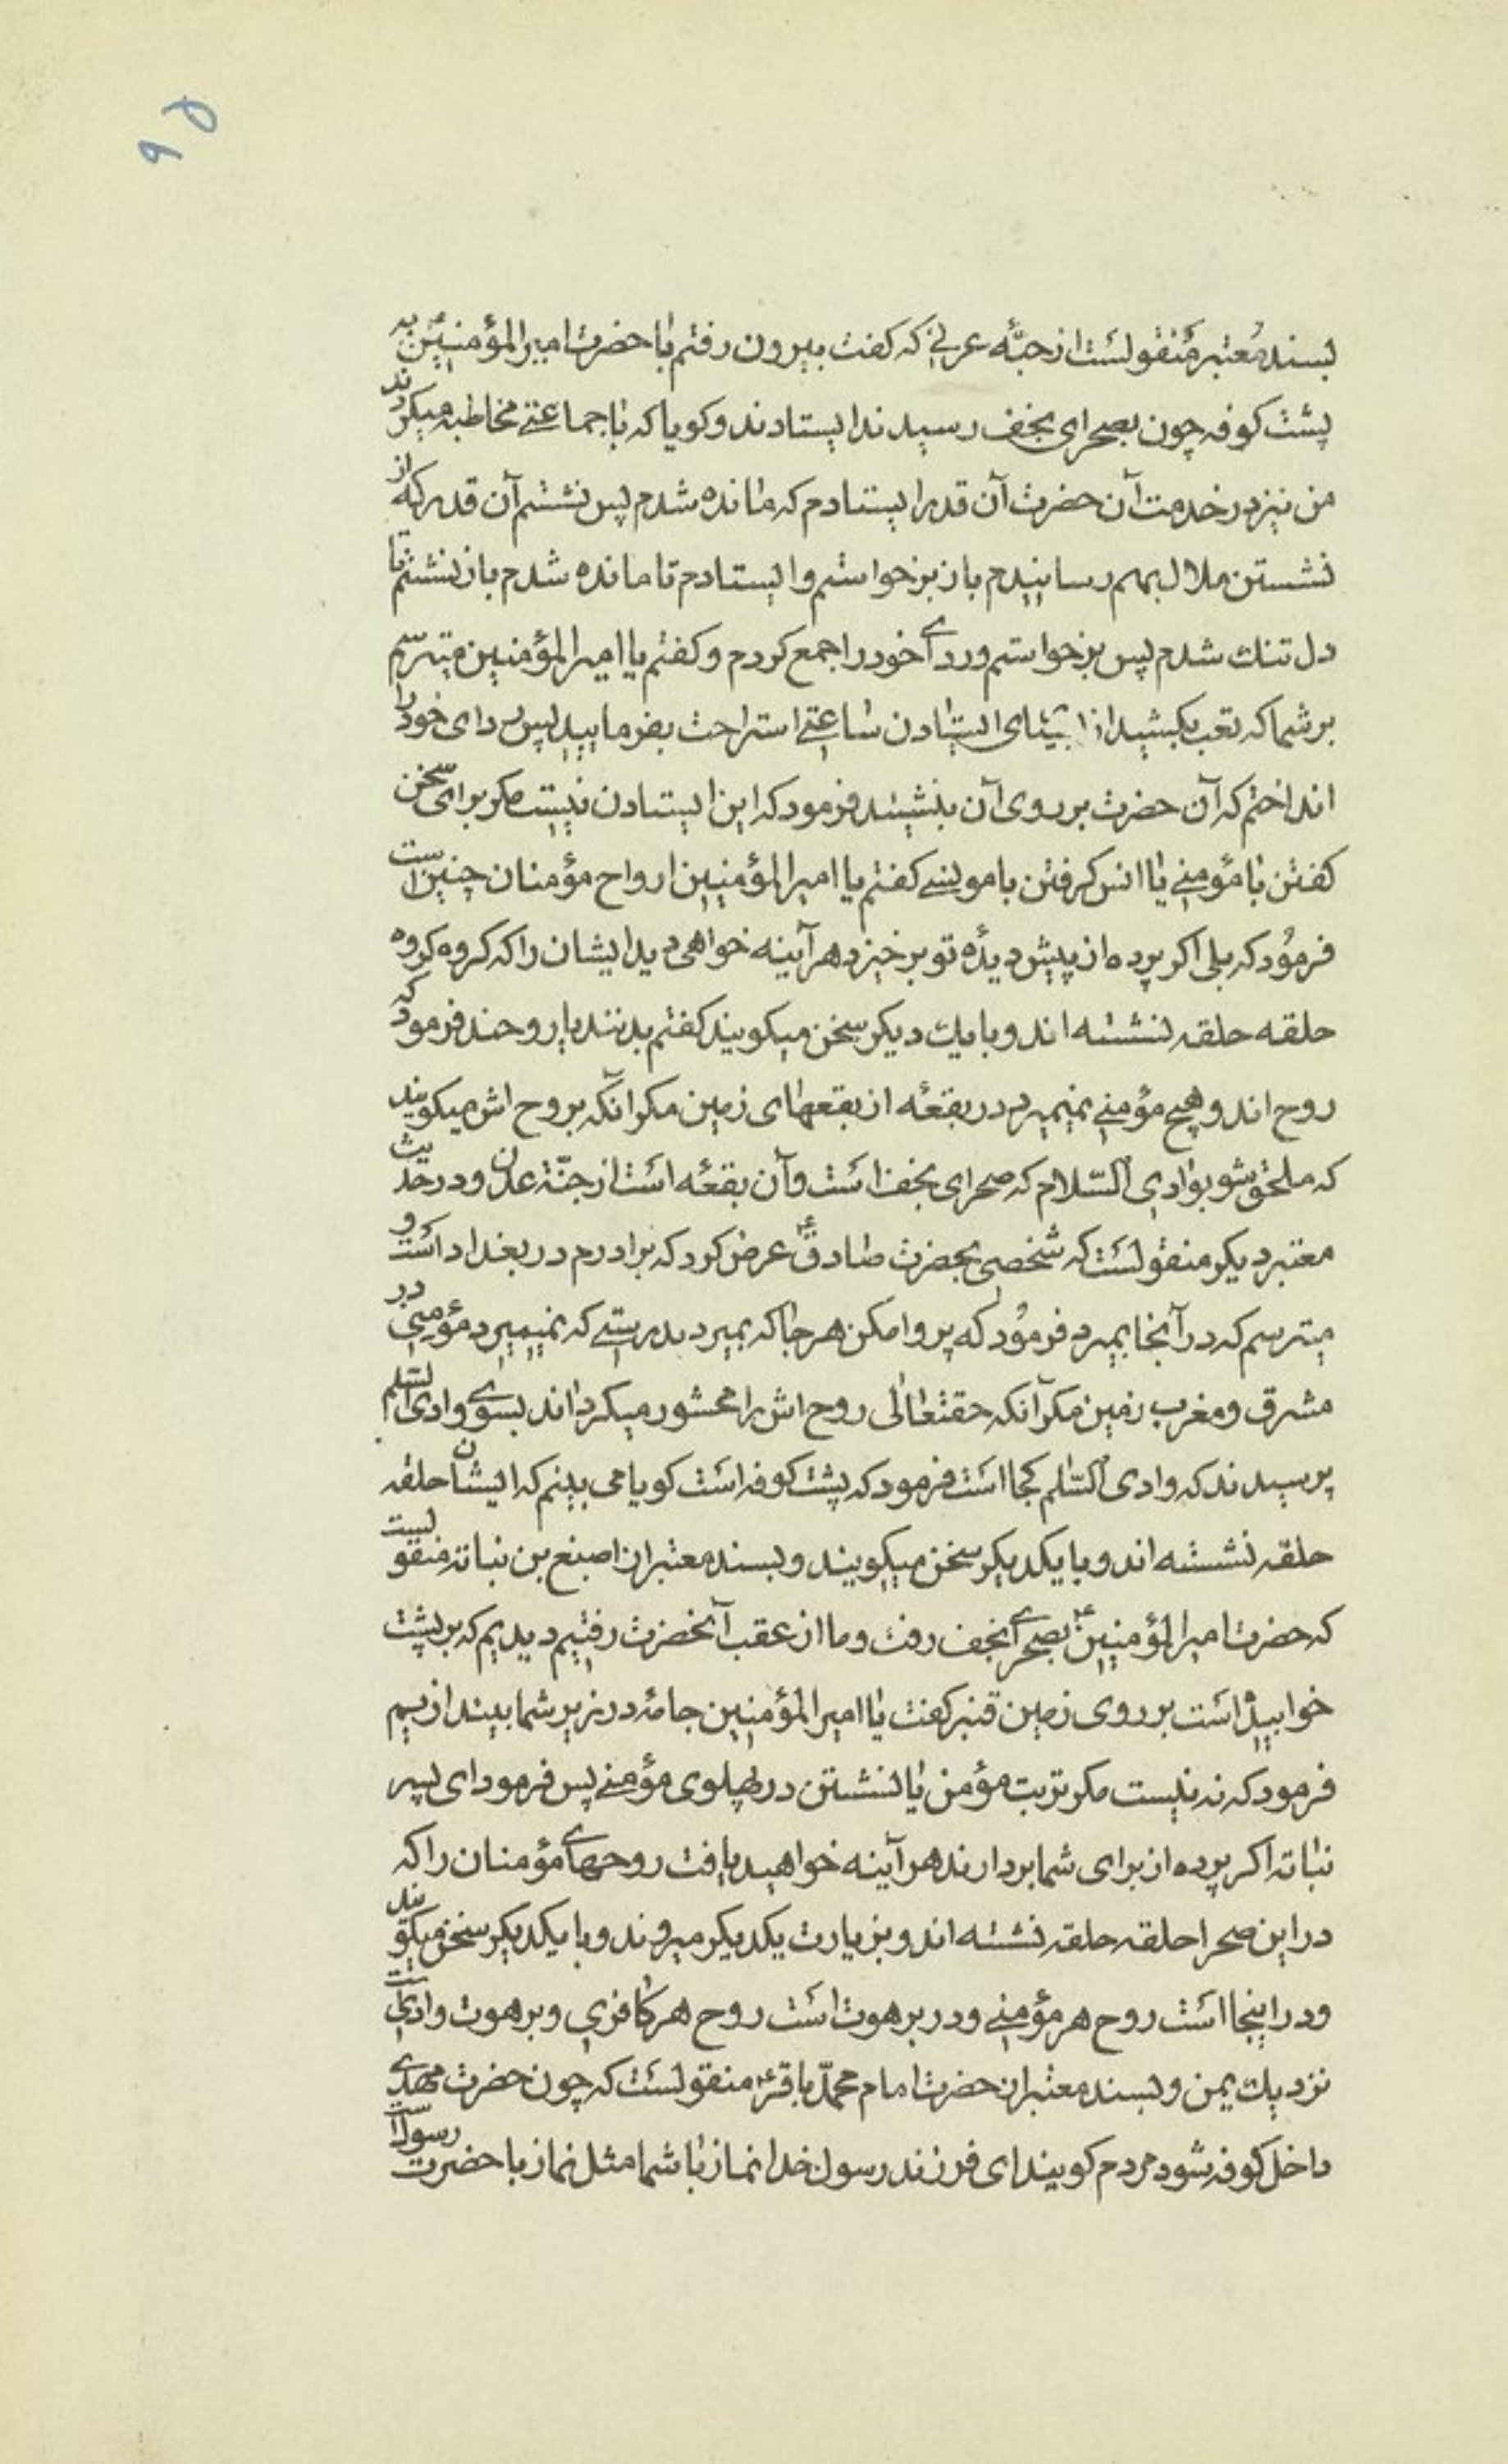 ۹۵
بسند معتبر منقولست از حبّه عرنے که کفت بیرون رفتم با حضرت امیرالمؤمنینؑ به
پشت کوفه چون بصحرای نجف رسیدند ایستادند و کویا که با جماعتے مخاطبه میکردند
من نیز در خدمت آن حضرت آن قدر ایستادم که مانده شدم پس نشستم آن قدر که از
نشستن ملال بهم رسانیدم باز برخواستم و ایستادم تا مانده شدم باز نشستم تا
دل تنك شدم پس برخواستم و ردے خود را جمع کردم و کفتم یا امیرالمؤمنین میترسم
بر شما که تعب بکشید از ایستادن ساعتے استراحت بفرمایید پس ردای خود را
انداختم که آن حضرت بر روی آن بنشیند فرمود که این ایستادن نیست مکر برای سخن
کفتن با مؤمنے یا انس کرفتن با مونسے کفتم یا امیرالمؤمنین ارواح مؤمنان چنین است
فرمُود که بلی اکر پرده از پیش دیدۀ تو برخیزد هر آینه خواهی دید ایشان را که کروه کروه
حلقه حلقه نشسته اند و با یك دیکر سخن میکویند کفتم بدنند یا روحند فرمود که
روح اند و هیچ مؤمنے نمیمیرد در بقعۀ از بقعهای زمین مکر آنکه بروح اش میکویند
که ملحق شو بوادی السّلام که صحرای نجف است و آن بقعۀ است از جنّة عدن و در حدیث
معتبر دیکر منقولست که شخصی بحضرت صادقؑ عرض کرد که برادرم در بغداد است و
میترسم که در آنجا بمیرد فرمُود که پروا مکن هر جا که بمیرد بدرستے که نمیمیرد مؤمنے در
مشرق و مغرب زمین مکر آنکه حقتعالی روح اش را محشور میکرداند بسوے وادی السّلم
پرسیدند که وادی السّلم کجا است فرمود که پشت کوفه است کویا می بینم که ایشان حلقه
حلقه نشسته اند و با یکدیکر سخن میکویند و بسند معتبر از اصبغ بن نباته منقولست
که حضرت امیرالمؤمنینؑ بصحرے نجف رفت و ما از عقب آنحضرت رفتیم دیدیم که بر پشت
خوابیده است بر روی زمین قنبر کفت یا امیرالمؤمنین جامۀ در زیر شما بیندازیم
فرمود که نه نیست مکر تربت مؤمن یا نشستن در پهلوی مؤمنے پس فرمود ای پسر
نباته اکر پرده از برای شما بردارند هر آینه خواهید یافت روحهاے مؤمنان را که
در این صحرا حلقه حلقه نشسته اند و بزیارت یکدیکر میروند و با یکدیکر سخن میکویند
و در اینجا است روح هر مؤمنے و در برهوت است روح هر کافری و برهوت وادیست
نزدیك یمن و بسند معتبر از حضرت امام محمّد باقرؑ منقولست که چون حضرت مهدے
داخل کوفه شود مردم کویند ای فرزند رسول خدا نماز با شما مثل نماز با حضرت رسولست